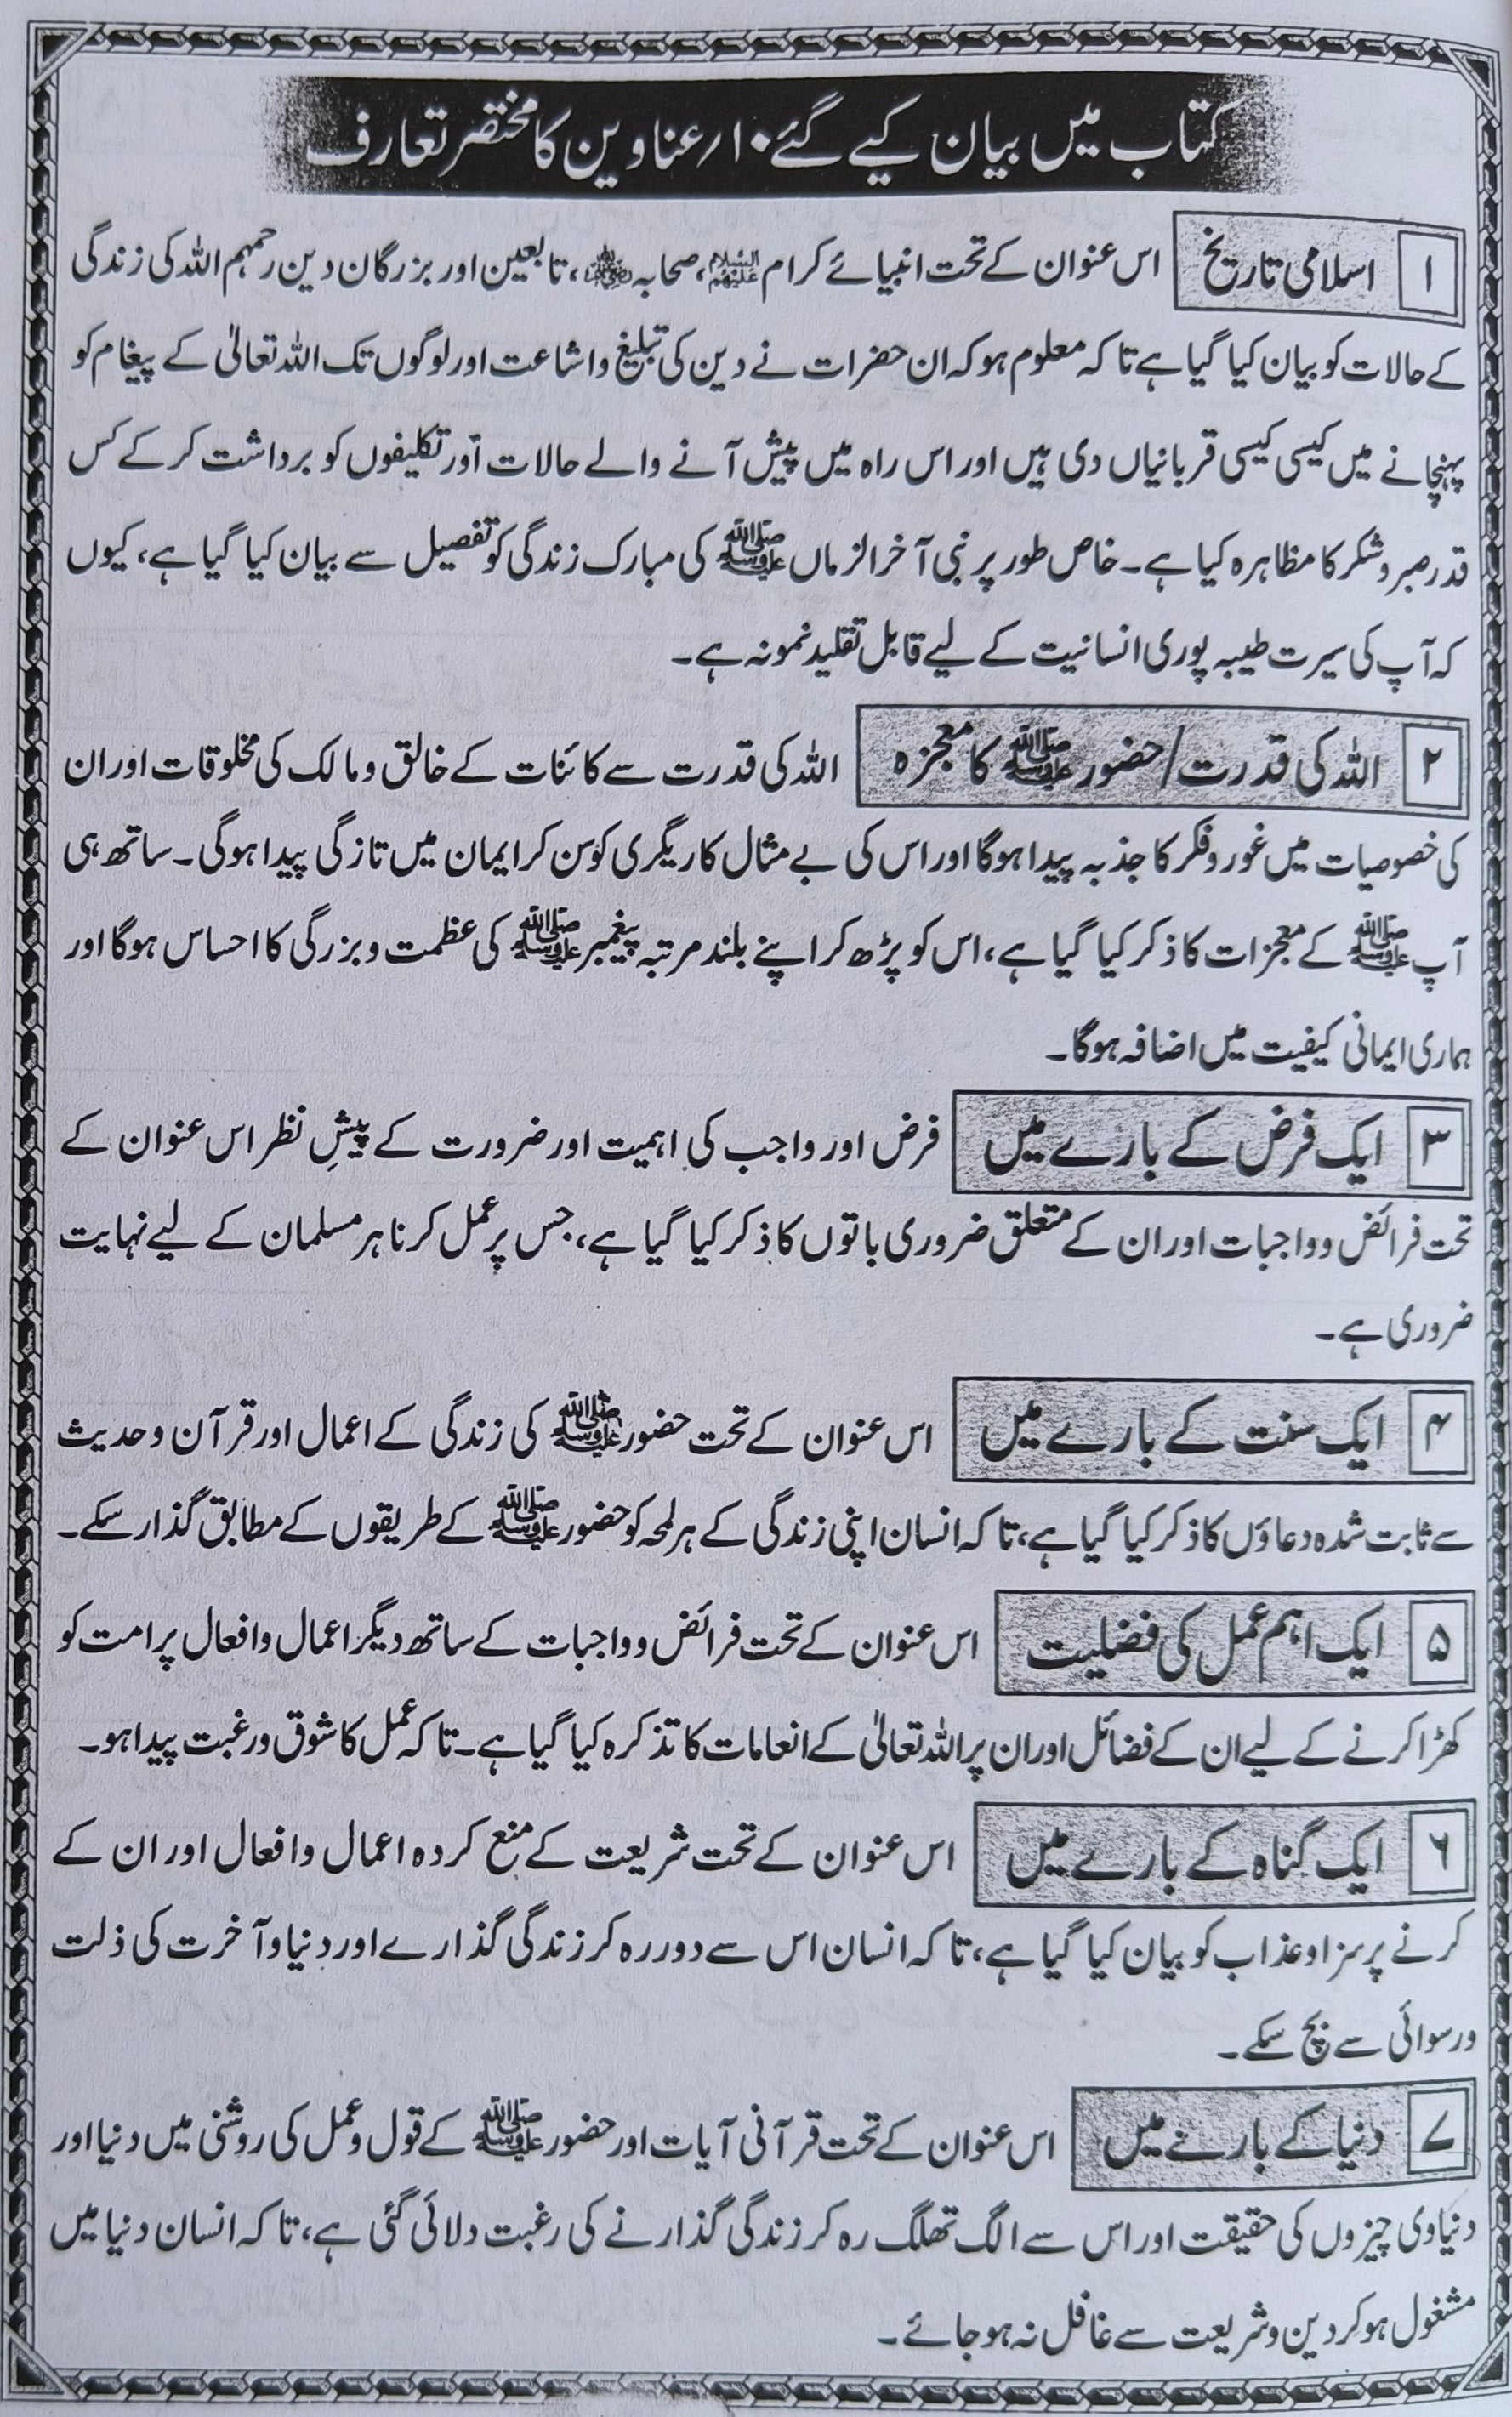 کتاب میں بیان کیے گئے ۱۰/عناوین کا مختصر تعارف
۱ اسلامی تاریخ اس عنوان کے تحت انبیائے کرام علیہم السلام، صحابہ رضی اللہ عنہم، تابعین اور بزرگان دین رحمہم اللہ کی زندگی
کے حالات کو بیان کیا گیا ہے تاکہ معلوم ہو کہ ان حضرات نے دین کی تبلیغ و اشاعت اور لوگوں تک اللہ تعالیٰ کے پیغام کو
پہنچانے میں کیسی کیسی قربانیاں دی ہیں اور اس راہ میں پیش آنے والے حالات اور تکلیفوں کو برداشت کر کے کس
قدر صبر و شکر کا مظاہرہ کیا ہے۔ خاص طور پر نبی آخر الزماں ﷺ کی مبارک زندگی کو تفصیل سے بیان کیا گیا ہے، کیوں
کہ آپ کی سیرت طیبہ پوری انسانیت کے لیے قابل تقلید نمونہ ہے۔
۲ اللہ کی قدرت/حضور ﷺ کا معجزہ اللہ کی قدرت سے کائنات کے خالق و مالک کی مخلوقات اور ان
کی خصوصیات میں غور و فکر کا جذبہ پیدا ہوگا اور اس کی بے مثال کاریگری کو سن کر ایمان میں تازگی پیدا ہوگی۔ ساتھ ہی
آپ ﷺ کے معجزات کا ذکر کیا گیا ہے، اس کو پڑھ کر اپنے بلند مرتبہ پیغمبر ﷺ کی عظمت و بزرگی کا احساس ہوگا اور
ہماری ایمانی کیفیت میں اضافہ ہوگا۔
۳ ایک فرض کے بارے میں فرض اور واجب کی اہمیت اور ضرورت کے پیشِ نظر اس عنوان کے
تحت فرائض و واجبات اور ان کے متعلق ضروری باتوں کا ذکر کیا گیا ہے، جس پر عمل کرنا ہر مسلمان کے لیے نہایت
ضروری ہے۔
۴ ایک سنت کے بارے میں اس عنوان کے تحت حضور ﷺ کی زندگی کے اعمال اور قرآن و حدیث
سے ثابت شدہ دعاؤں کا ذکر کیا گیا ہے، تاکہ انسان اپنی زندگی کے ہر لمحہ کو حضور ﷺ کے طریقوں کے مطابق گذار سکے۔
۵ ایک اہم عمل کی فضلیت اس عنوان کے تحت فرائض و واجبات کے ساتھ دیگر اعمال و افعال پر امت کو
کھڑا کرنے کے لیے ان کے فضائل اور ان پر اللہ تعالیٰ کے انعامات کا تذکرہ کیا گیا ہے۔ تاکہ عمل کا شوق و رغبت پیدا ہو۔
۶ ایک گناہ کے بارے میں اس عنوان کے تحت شریعت کے منع کردہ اعمال و افعال اور ان کے
کرنے پر سزا و عذاب کو بیان کیا گیا ہے، تاکہ انسان اس سے دور رہ کر زندگی گذارے اور دنیا و آخرت کی ذلت
و رسوائی سے بچ سکے۔
۷ دنیا کے بارے میں اس عنوان کے تحت قرآنی آیات اور حضور ﷺ کے قول و عمل کی روشنی میں دنیا اور
دنیاوی چیزوں کی حقیقت اور اس سے الگ تھلگ رہ کر زندگی گذارنے کی رغبت دلائی گئی ہے، تاکہ انسان دنیا میں
مشغول ہو کر دین و شریعت سے غافل نہ ہو جائے۔